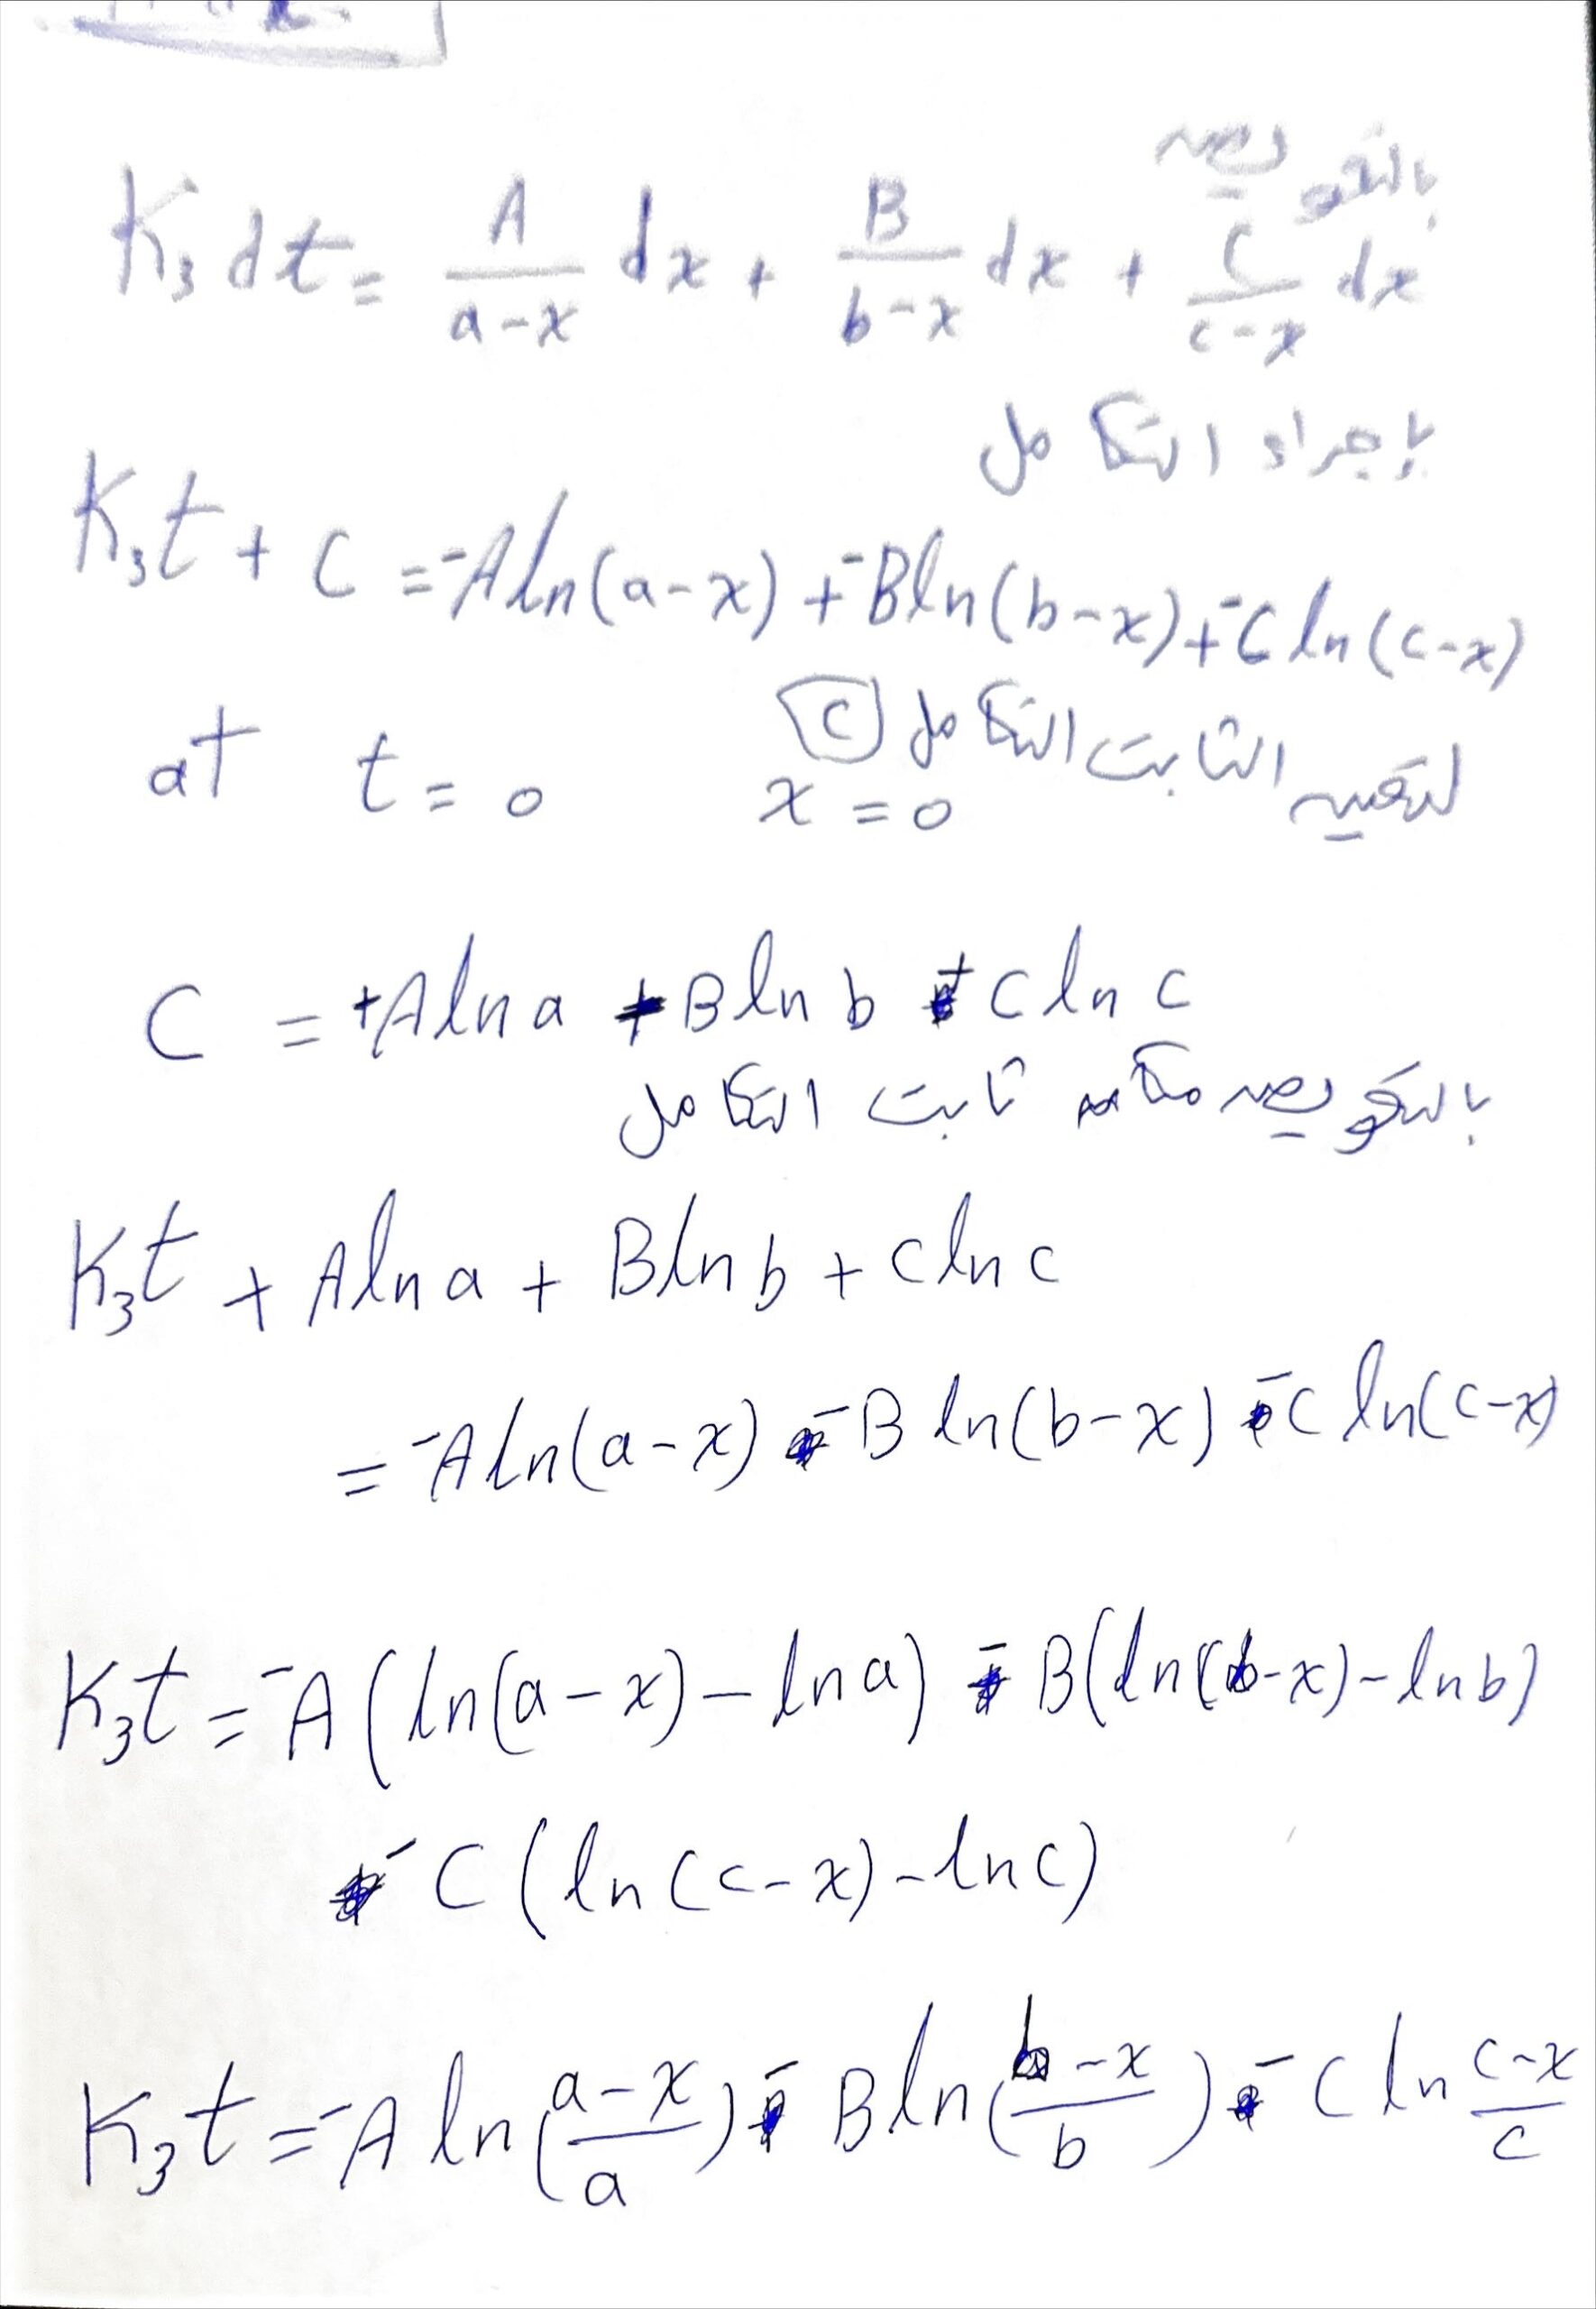 بالتعويض
K₃dt = A/(a-x) dx + B/(b-x) dx + C/(c-x) dx
بإجراء التكامل
K₃t + C = -Aln(a-x) + -Bln(b-x) + -C ln(c-x)
لتعيين الثابت التكامل C
at t = 0 x = 0
C = +Aln a + Bln b + C ln c
بالتعويض ثابت التكامل
K₃t + Aln a + Bln b + c ln c
= -Aln(a-x) - B ln(b-x) - C ln(c-x)
K₃t = -A(ln(a-x) - ln a) - B(ln(b-x) - lnb)
- C(ln(c-x) - lnc)
K₃t = -A ln((a-x)/a) - Bln((b-x)/b) - C ln (c-x)/c